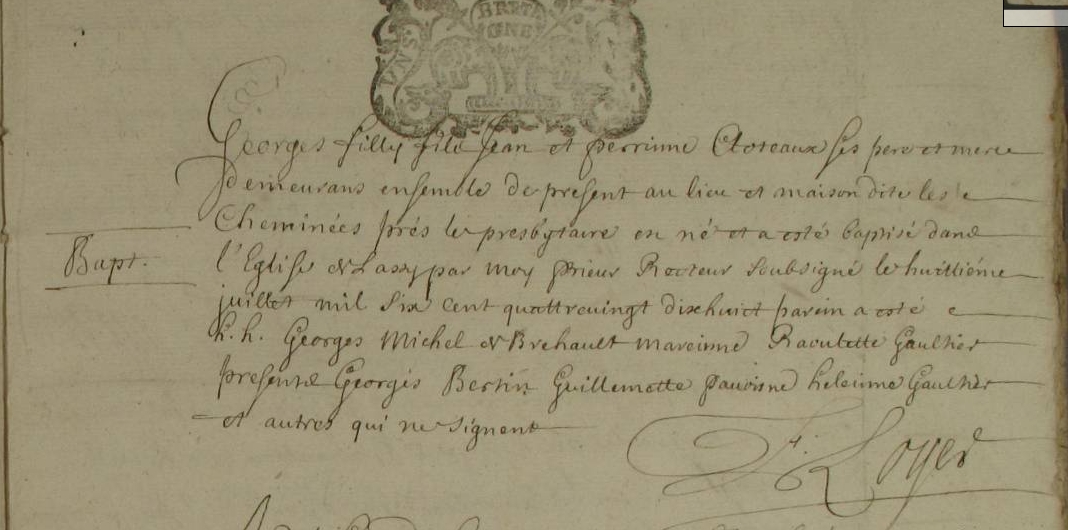 VNS
BRETA
GNE
Georges filly fils Jean et perrinne Cloteaux ses pere et mere
demeurans ensemble de present au lieu et maison dite les
Cheminées prés le presbytaire en né et a esté baptisé dans
Bapt.
l'Eglise de Lassy par moy prieur Recteur soubsigné le huittiéme
juillet mil six cent quattrevingt dixhuict parein a esté
h. h. Georges Michel de Brehault mareinne Raoulette Gaultier
presents Georges Bertin Guillemette heleinne Gaultier
et autres qui ne signent
F. Loyer